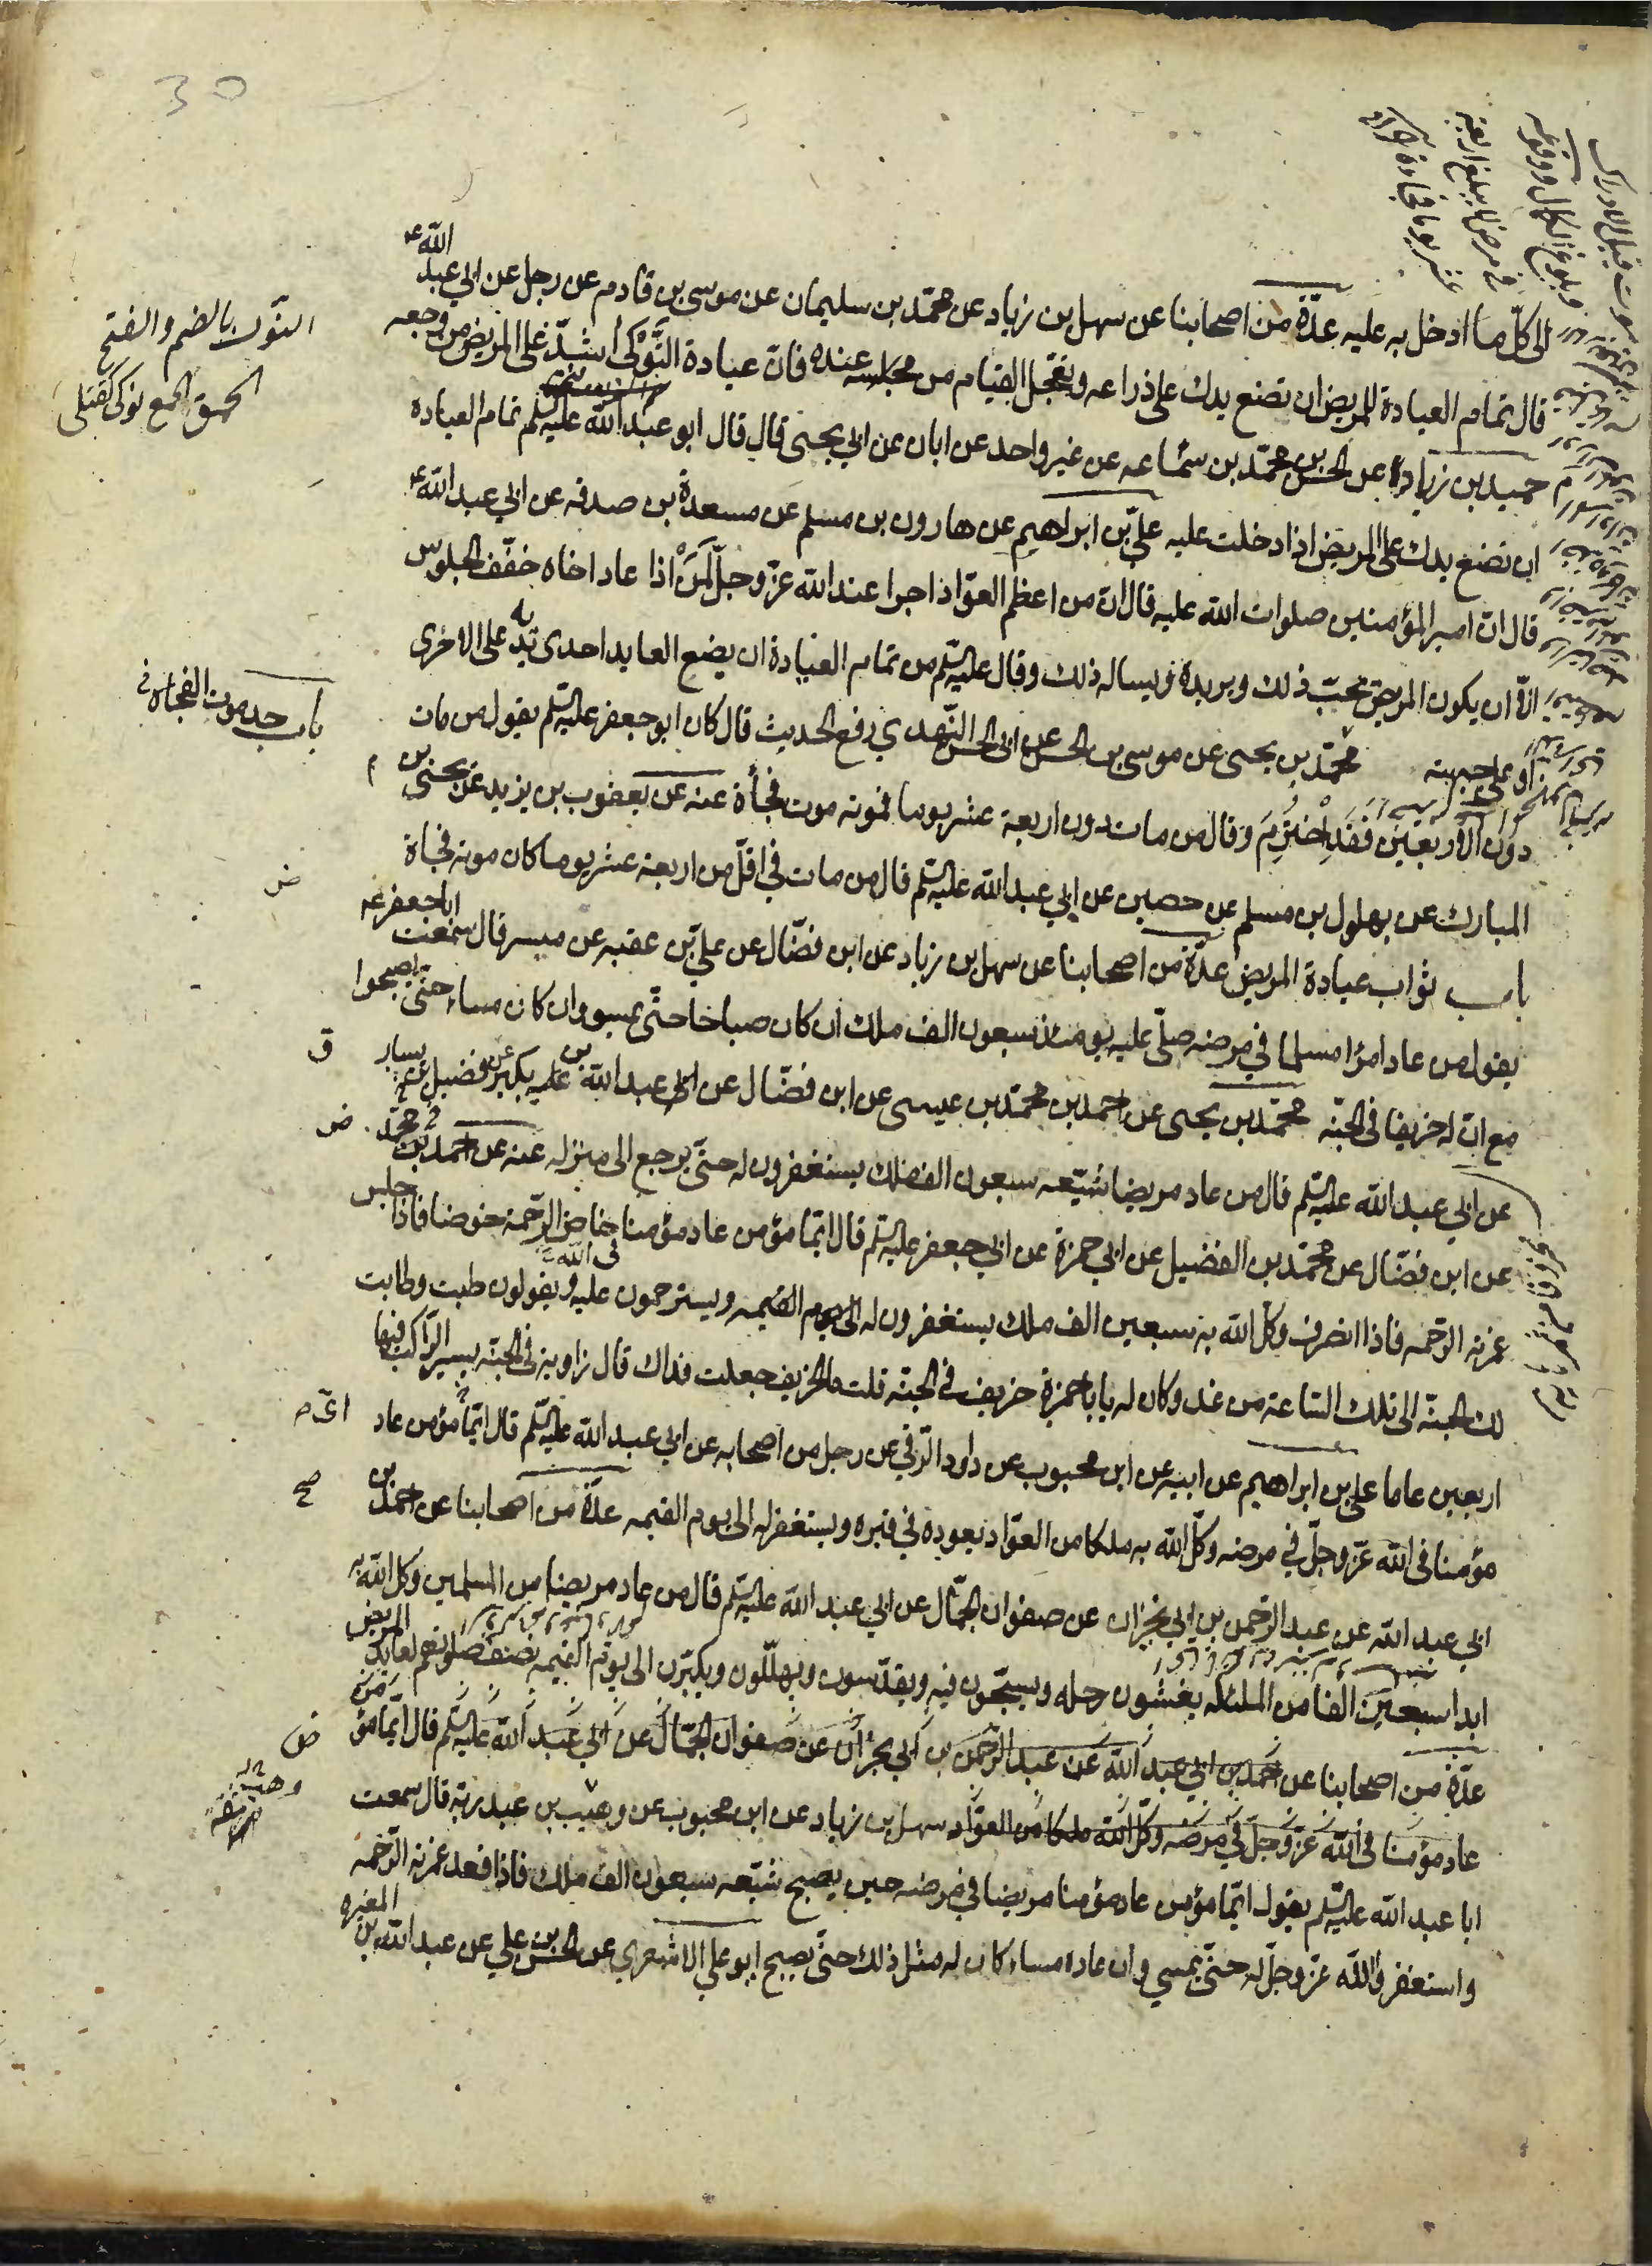 30
الى كلّ ما ادخل به عليه عدّة من اصحابنا عن سهل بن زياد عن محمّد بن سليمان عن موسى بن قادم عن رجل عن ابي عبد الله ع
قال تمام العيادة للمريض ان تضع يدك على ذراعه و تعجّل القيام من مجلسه عنده فان عيادة النَّوْكى أشدّ على المريض من وجعه
حميد بن زياد عن الحسن بن محمّد بن سماعه عن غير واحد عن ابان عن ابي يحيى قال قال ابو عبد الله عليه السلم تمام العياده
ان تضع يدك على المريض اذا دخلت عليه علىّ بن ابراهيم عن هارون بن مسلم عن مسعدة بن صدقه عن ابي عبد الله ع
قال انّ امير المؤمنين صلوات الله عليه قال انّ من اعظم العوّاد اجرا عند الله عزّ وجلّ لَمَنْ اذا عاد اخاه خفّف الجلوس
الّا ان يكون المريض يحبّ ذلك ويريده ويساله ذلك وقال عليه السلم من تمام العيادة ان يضع العايد احدى يديه على الاخرى
او على جبهته محمّد بن يحيى عن موسى بن الحسن عن ابى الحسن النّهدي رفع الحديث قال كان ابو جعفر عليه السلم يقول من مات
دون الأربعين فقد اخْتُرِمَ وقال من مات دون اربعة عشر يوما فموته موت فجأة عنه عن يعقوب بن يزيد عن يحيى بن
المبارك عن بهلول بن مسلم عن حصين عن ابي عبد الله عليه السلم قال من مات في اقلّ من اربعة عشر يوما كان موته فجاة
باب ثواب عيادة المريض عدّة من اصحابنا عن سهل بن زياد عن ابن فضّال عن علىّ بن عقبه عن ميسر قال سمعت ابا جعفر ع
يقول من عاد امرؤا مسلما في مرضه صلّى عليه يومئذ سبعون الف ملك ان كان صباحا حتّى يمسوا وان كان مساء حتّى يصبحوا
مع انّ له خريفا فى الجنّه محمّد بن يحيى عن احمد بن محمّد بن عيسى عن ابن فضّال عن عبد الله بن بكير عن فضيل بن يسار
عن ابي عبد الله عليه السلم قال من عاد مريضا شيّعه سبعون الف ملك يستغفرون له حتّى يرجع الى منزله عنه عن احمد بن محمّد
عن ابن فضّال عن محمّد بن الفضيل عن ابي حمزة عن ابي جعفر عليه السلم قال ايّما مؤمن عاد مؤمنا خاض الرّحمة خوضا فاذا جلس
غمرته الرّحمه فاذا انصرف وكّل الله به سبعين الف ملك يستغفرون له الى يوم القيمه ويسترحمون عليه ويقولون طبت وطابت
لك الجنّة الى تلك السّاعة من غد وكان له يا باحمزة خريف في الجنّه قلت ما الخريف جعلت فداك قال زاوية فى الجنّه يسير الرّاكب فيها
اربعين عاما علي بن ابراهيم عن ابيه عن ابن محبوب عن داود الرّقي عن رجل من اصحابه عن ابي عبد الله عليه السلم قال ايّما مؤمن عاد
مؤمنا فى الله عزّ وجلّ في مرضه وكّل الله به ملكا من العوّاد يعوده في قبره ويستغفر له الى يوم القيمه عدّة من اصحابنا عن احمد بن
ابي عبد الله عن عبد الرّحمن بن ابي نجران عن صفوان الجمّال عن ابي عبد الله عليه السلم قال من عاد مريضا من المسلمين وكّل الله به
ابدا سبعين الفا من الملئكه يغشون رحله ويسبّحون فيه ويقدّسون ويهلّلون ويكبّرون الى يوم القيمه نصف صلوتهم لعايد المريض
عدّة من اصحابنا عن احمد بن ابي عبد الله عن عبد الرّحمن بن ابي نجران عن صفوان الجمّال عن ابي عبد الله عليه السلم قال ايّما مؤمن
عاد مؤمنا فى الله عزّ وجلّ في مرضه وكّل الله ملكا من العوّاد سهل بن زياد عن ابن محبوب عن وهيب بن عبد ربّه قال سمعت
ابا عبد الله عليه السلم يقول ايّما مؤمن عاد مؤمنا مريضا في مرضه حين يصبح شيّعه سبعون الف ملك فاذا قعد غمرته الرّحمه
واستغفروا الله عزّ وجلّ له حتّى يمسي وان عاده مساء كان له مثل ذلك حتّى يصبح ابو علي الاشعري عن الحسن بن علي عن عبد الله بن المغيره
النوك بالضم والفتح
الحمق الجمع نوكى كقتلى
باب حد موت الفجاه
ض
ق
ض
صح
ض